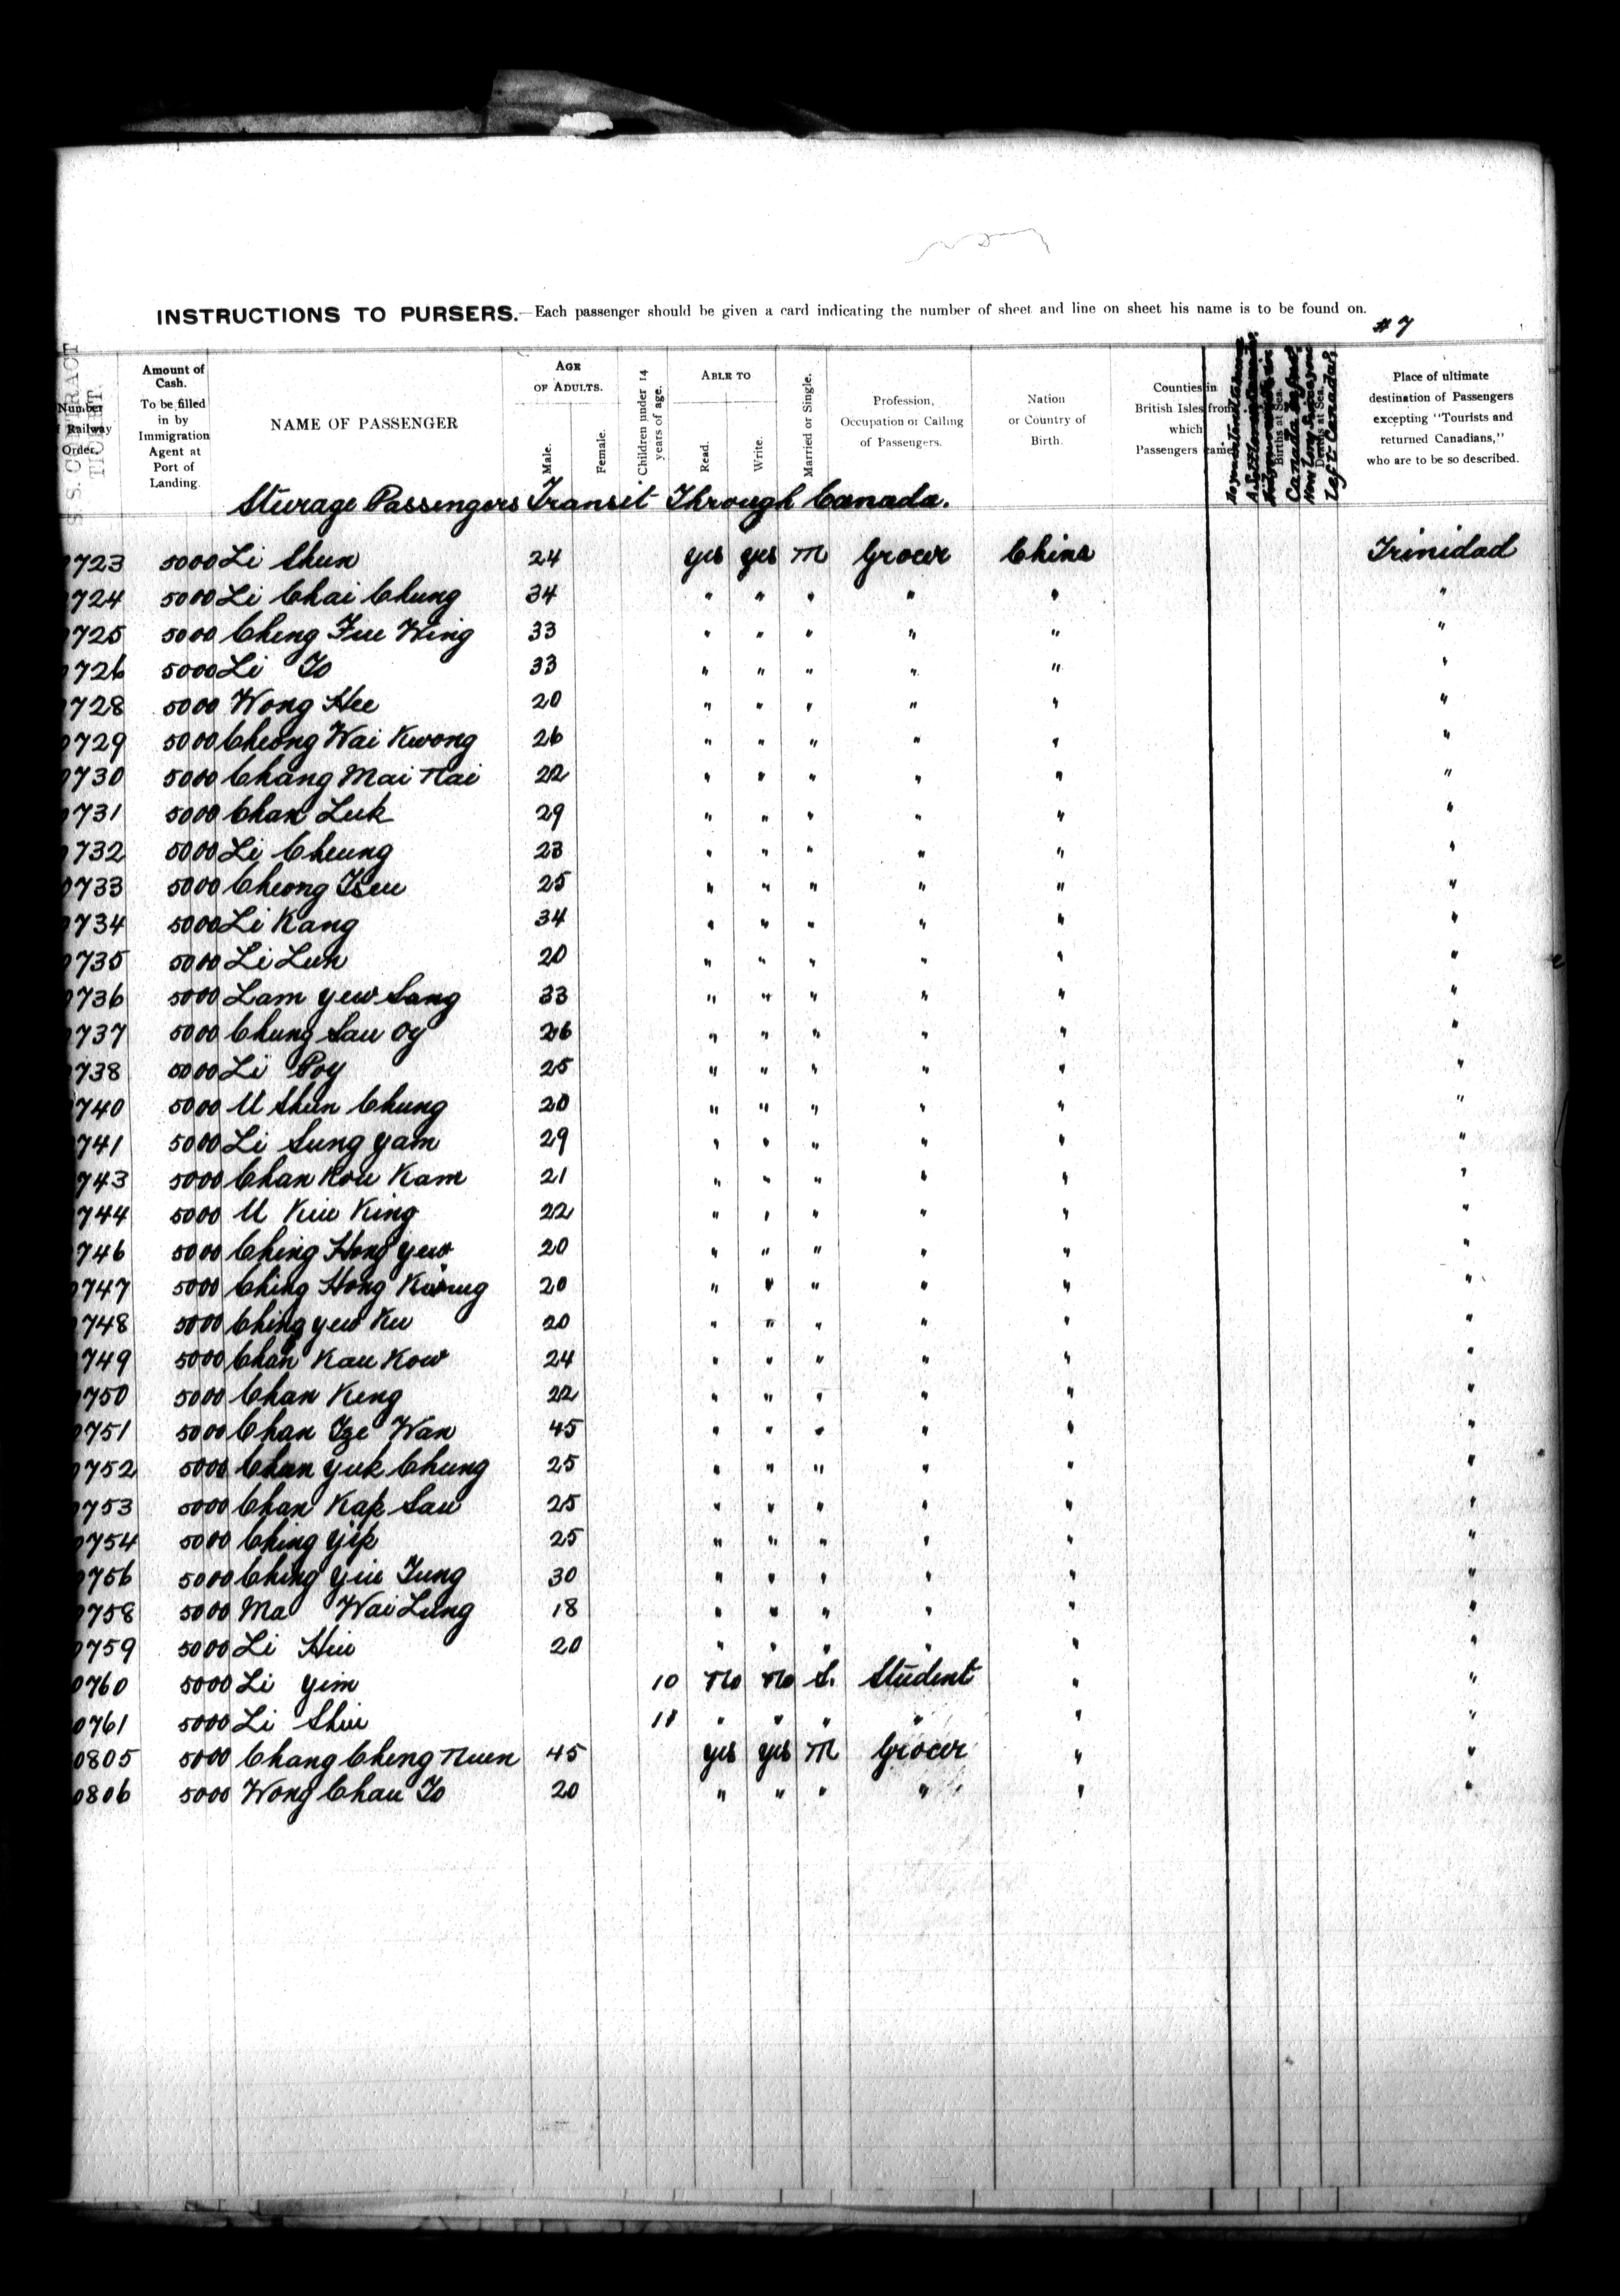 INSTRUCTIONS TO PURSERS.—Each passenger should be given a card indicating the number of sheet and line on sheet his name is to be found on.
# 7
S. S. CONTRACT TICKET.
Number Railway Order.
Amount of Cash. To be filled in by Immigration Agent at Port of Landing
NAME OF PASSENGER
AGE OF ADULTS.
Male.
Female.
Children under 14 years of age.
ABLE TO
Read.
Write.
Married or Single.
Profession, Occupation or Calling of Passengers.
Nation or Country of Birth.
Counties in British Isles from which Passengers came
Births at Sea.
Deaths at Sea.
Canada before
Left Canada?
Place of ultimate destination of Passengers excepting "Tourists and returned Canadians," who are to be so described.
Steerage Passengers Transit Through Canada.
723 5000 Li Shun 24 yes yes M Grocer China Trinidad
724 5000 Li Chai Chung 34 " " " " " "
725 5000 Cheng Fue Wing 33 " " " " " "
726 5000 Li To 33 " " " " " "
728 5000 Wong Hee 20 " " " " " "
729 5000 Cheong Wai Kwong 26 " " " " " "
730 5000 Chang Mai Nai 22 " " " " " "
731 5000 Chan Luk 29 " " " " " "
732 5000 Li Cheung 23 " " " " " "
733 5000 Cheong Tseu 25 " " " " " "
734 5000 Li Kang 34 " " " " " "
735 5000 Li Lun 20 " " " " " "
736 5000 Lam Yew Sang 33 " " " " " "
737 5000 Chung Sau Oy 26 " " " " " "
738 5000 Li Poy 25 " " " " " "
740 5000 U Shun Chung 20 " " " " " "
741 5000 Li Sung Yam 29 " " " " " "
743 5000 Chan Kou Kam 21 " " " " " "
744 5000 U Kiu King 22 " " " " " "
746 5000 Ching Hong Yew 20 " " " " " "
747 5000 Ching Hong 20 " " " " " "
748 5000 Ching Yew Ku 20 " " " " " "
749 5000 Chan Kau Kow 24 " " " " " "
750 5000 Chan Keng 22 " " " " " "
751 5000 Chan Tze Wan 45 " " " " " "
752 5000 Chan Yuk Chung 25 " " " " " "
753 5000 Chan Kap Sau 25 " " " " " "
754 5000 Ching Yip 25 " " " " " "
756 5000 Ching Yiu Tung 30 " " " " " "
758 5000 Ma Wai Lung 18 " " " " " "
759 5000 Li Hiu 20 " " " " " "
0760 5000 Li Yim 10 No No S. Student " "
0761 5000 Li Shiu 11 " " " " " "
0805 5000 Chang Cheng Nuen 45 yes yes M Grocer " "
0806 5000 Wong Chau To 20 " " " " " "